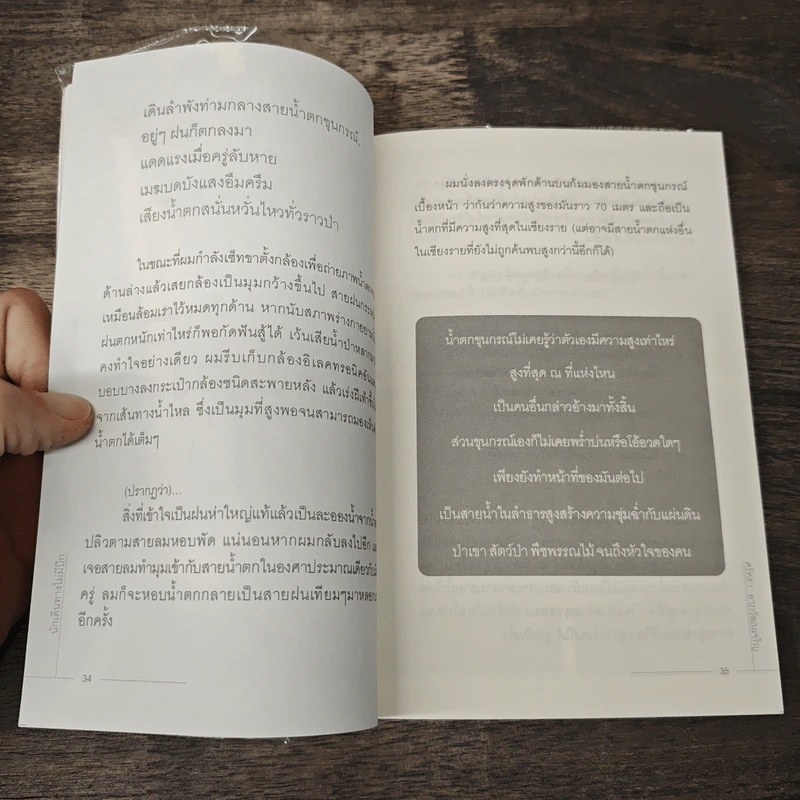 เดินลำพังท่ามกลางสายน้ำตกขุนกรณ์
อยู่ๆ ฝนก็ตกลงมา
แดดแรงเมื่อครู่ลับหาย
เมฆบดบังแสงอึมครึม
เสียงน้ำตกสนั่นหวั่นไหวทั่วราวป่า
ในขณะที่ผมกำลังเซ็ทขาตั้งกล้องเพื่อถ่ายภาพ
ด้านล่างแล้วเสยกล้องเป็นมุมกว้างขึ้นไป
เหมือนล้อมเราไว้หมดทุกด้าน หากนับสภาพร่างกาย
ฝนตกหนักเท่าไหร่ก็พอกัดฟันสู้ได้ เว้นเสียน้ำป่า
คงทำใจอย่างเดียว ผมรีบเก็บกล้องอิเลคทรอนิค
บอบบางลงกระเป๋ากล้องชนิดสะพายหลัง แล้วเร่งฝีเท้า
จากเส้นทางน้ำไหล ซึ่งเป็นมุมที่สูงพอจนสามารถมอง
น้ำตกได้เต็มๆ
(ปรากฏว่า)...
สิ่งที่เข้าใจเป็นฝนห่าใหญ่แท้แล้วเป็นละอองน้ำจาก
ปลิวตามสายลมหอบพัด แน่นอนหากผมกลับลงไปอีก
เจอสายลมทำมุมเข้ากับสายน้ำตกในองศาประมาณเดียวกับ
ครู่ ลมก็จะหอบน้ำตกกลายเป็นสายฝนเทียมๆมาหลอก
อีกครั้ง
นักเดินทางไม่มีปีก
34
ผมนั่งลงตรงจุดพักด้านบนก้มมองสายน้ำตกขุนกรณ์
เบื้องหน้า ว่ากันว่าความสูงของมันราว 70 เมตร และถือเป็น
น้ำตกที่มีความสูงที่สุดในเชียงราย (แต่อาจมีสายน้ำตกแห่งอื่น
ในเชียงรายที่ยังไม่ถูกค้นพบสูงกว่านี้อีกก็ได้)
น้ำตกขุนกรณ์ไม่เคยรู้ว่าตัวเองมีความสูงเท่าไหร่
สูงที่สุด ณ ที่แห่งไหน
เป็นคนอื่นกล่าวอ้างมาทั้งสิ้น
ส่วนขุนกรณ์เองก็ไม่เคยพร่ำบ่นหรือโอ้อวดใดๆ
เพียงยังทำหน้าที่ของมันต่อไป
เป็นสายน้ำในลำธารสูงสร้างความชุ่มฉ่ำกับแผ่นดิน
ป่าเขา สัตว์ป่า พืชพรรณไม้ จนถึงหัวใจของคน
35